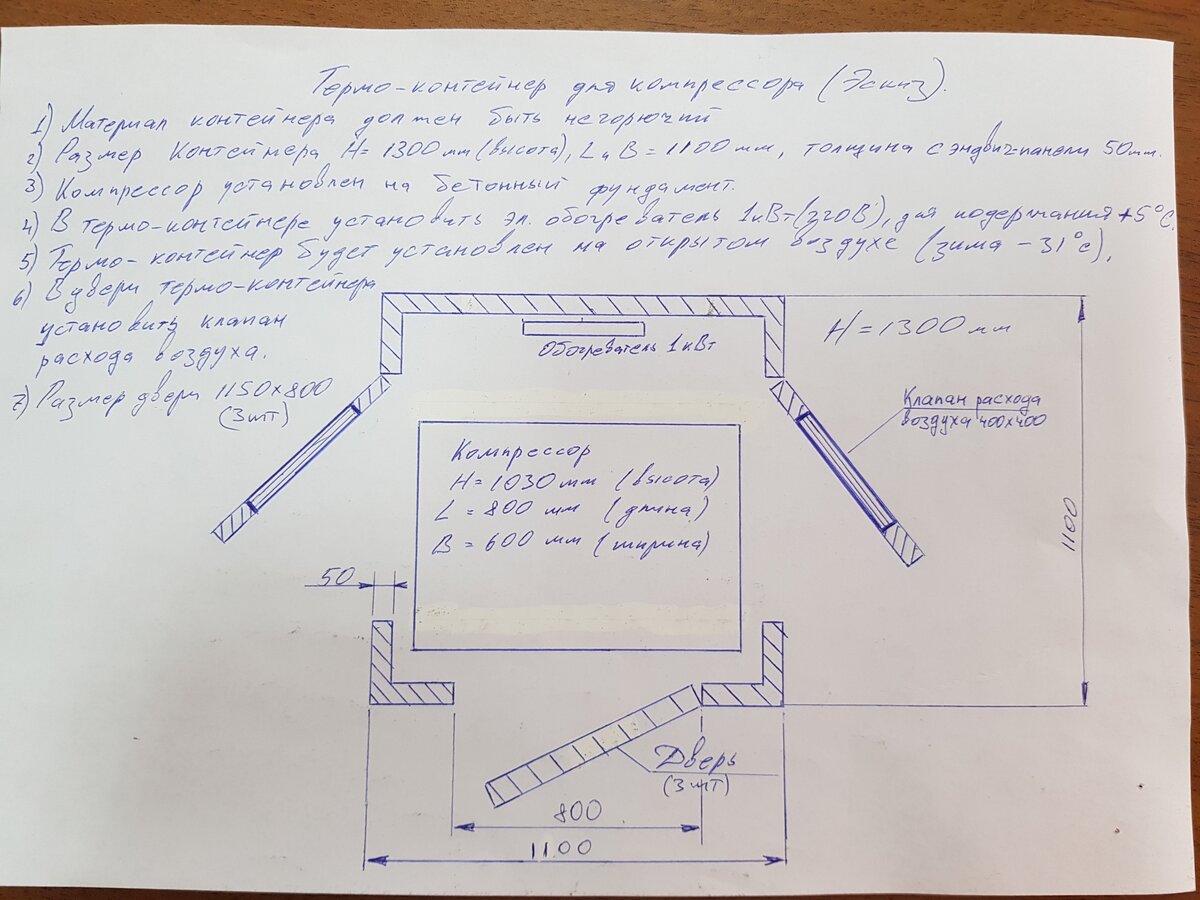 Термо-контейнер для компрессора (Эскиз).
1) Материал контейнера должен быть негорючий
2) Размер контейнера H= 1300 мм (высота), L и B = 1100 мм, толщина сэндвич-панели 50мм.
3) Компрессор установлен на бетонный фундамент.
4) В термо-контейнере установить эл. обогреватель 1кВт(220В), для подержания +5°C.
5) Термо-контейнер будет установлен на открытом воздухе (зима -31°c).
6) В двери термо-контейнера
установить клапан
расхода воздуха.
7) Размер двери 1150х800
(3шт)
H = 1300 мм
Обогреватель 1кВт
Клапан расхода
воздуха 400х400
Компрессор
H = 1030 мм (высота)
L = 800 мм (длина)
B = 600 мм (ширина)
1100
50
Дверь
(3шт)
800
1100